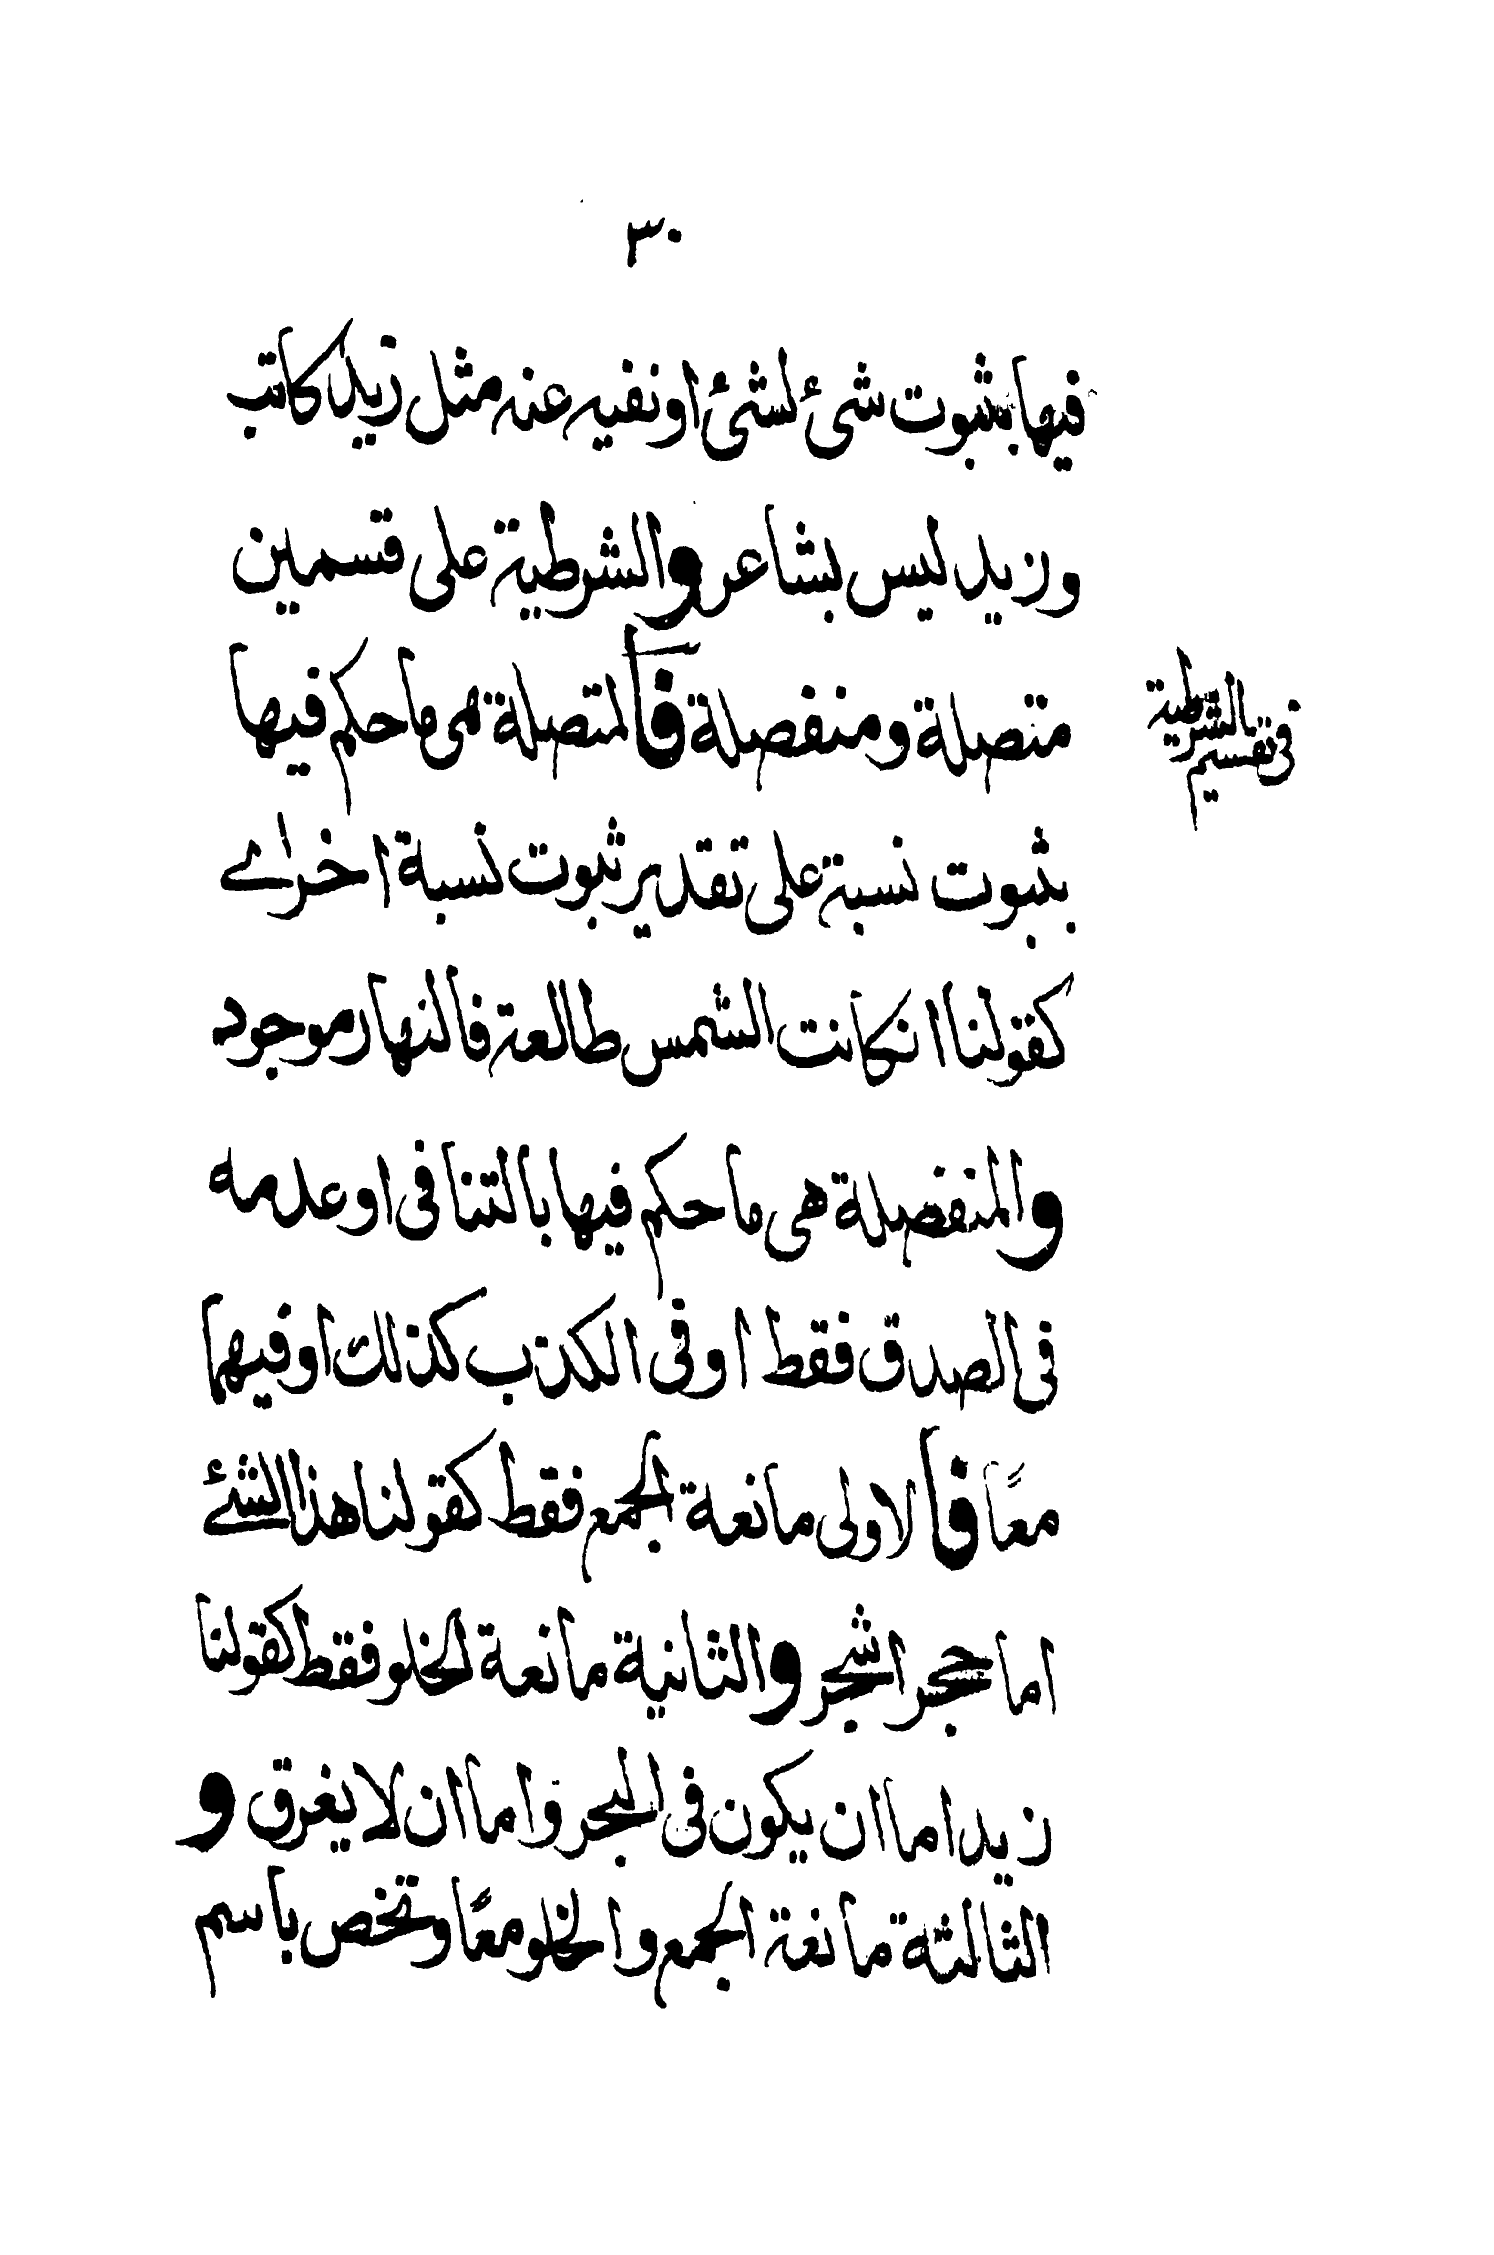 ٣٠
فيها بثبوت شئ لشئ او نفيه عنه مثل زيد كاتب
وزيد ليس بشاعر والشرطية على قسمين
متصلة ومنفصلة فالمتصلة هى ما حكم فيها
فى تقسيم الشرطية
بثبوت نسبة على تقدير ثبوت نسبة اخرٰے
كقولنا انكانت الشمس طالعة فالنهار موجود
والمنفصلة هى ما حكم فيها بالتنافى او عدمه
فى الصدق فقط او فى الكذب كذلك او فيهما
معًا فالاولى مانعة الجمع فقط كقولنا هذا الشئے
اما حجر اشجر والثانية مانعة الخلو فقط كقولنا
زيد اما ان يكون فى البحر واما ان لا يغرق و
الثالثة مانعة الجمع والخلو معًا وتخص باسم